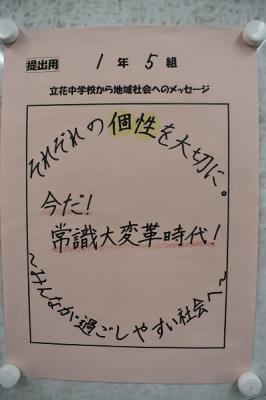 提出用
1年5組
立花中学校から地域社会へのメッセージ
それぞれの個性を大切に。
今だ！
常識大変革時代！
～みんなが過ごしやすい社会へ～